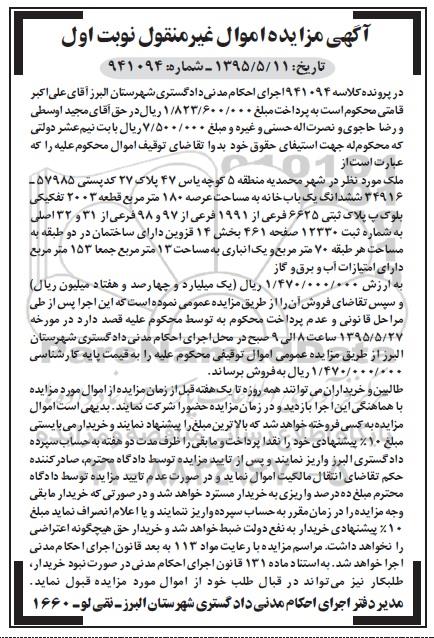 آگهی مزایده اموال غیرمنقول نوبت اول
تاریخ: ۱۳۹۵/۵/۱۱ ـ شماره: ۹۴۱۰۹۴
در پرونده کلاسه ۹۴۱۰۹۴ اجرای احکام مدنی دادگستری شهرستان البرز آقای علی اکبر
قامتی محکوم است به پرداخت مبلغ ۱/۸۲۳/۶۰۰/۰۰۰ ریال در حق آقای مجید اوسطی
و رضا حاجوی و نصرت اله حسنی و غیره و مبلغ ۷/۵۰۰/۰۰۰ ریال بابت نیم عشر دولتی
که محکوم له جهت استیفای حقوق خود بدوا تقاضای توقیف اموال محکوم علیه را که
عبارت است از
ملک مورد نظر در شهر محمدیه منطقه ۵ کوچه یاس ۴۷ پلاک ۲۷ کدپستی ۵۷۹۸۵ ـ
۳۴۹۱۶ ششدانگ یک باب خانه به مساحت عرصه ۱۸۰ متر مربع قطعه ۲۰۰۳ تفکیکی
بلوک ب پلاک ثبتی ۶۶۲۵ فرعی از ۱۹۹۱ فرعی از ۹۷ و ۹۸ فرعی از ۳۱ و ۳۲ اصلی
به شماره ثبت ۱۲۳۳۰ صفحه ۴۶۱ بخش ۱۴ قزوین دارای ساختمان در دو طبقه به
مساحت هر طبقه ۷۰ متر مربع و یک انباری به مساحت ۱۳ متر مربع جمعا ۱۵۳ متر مربع
دارای امتیازات آب و برق و گاز
به ارزش ۱/۴۷۰/۰۰۰/۰۰۰ ریال (یک میلیارد و چهارصد و هفتاد میلیون ریال)
و سپس تقاضای فروش آن را از طریق مزایده عمومی نموده است که این اجرا پس از طی
مراحل قانونی و عدم پرداخت محکوم به توسط محکوم علیه قصد دارد در مورخه
۱۳۹۵/۵/۲۷ ساعت ۸ الی ۹ صبح در محل اجرای احکام مدنی دادگستری شهرستان
البرز از طریق مزایده عمومی اموال توقیفی محکوم علیه را به قیمت پایه کارشناسی
۱/۴۷۰/۰۰۰/۰۰۰ ریال به فروش برساند.
طالبین و خریداران می توانند همه روزه تا یک هفته قبل از زمان مزایده از اموال مورد مزایده
با هماهنگی این اجرا بازدید و در زمان مزایده حضورا شرکت نمایند. بدیهی است اموال
مزایده به کسی فروخته خواهد شد که بالاترین مبلغ را پیشنهاد نمایند و خریدار می بایستی
مبلغ ۱۰٪ پیشنهادی خود را نقدا پرداخت و مابقی را ظرف مدت دو هفته به حساب سپرده
دادگستری البرز واریز نمایند و پس از تایید مزایده توسط دادگاه محترم، صادر کننده
حکم تقاضای انتقال مالکیت اموال نماید و در صورت عدم تایید مزایده توسط دادگاه
محترم مبلغ ده درصد واریزی به خریدار مسترد خواهد شد و در صورتی که خریدار مابقی
وجه مزایده را در زمان مقرر به حساب سپرده واریز ننمایند و یا اعلام انصراف نماید مبلغ
۱۰٪ پیشنهادی خریدار به نفع دولت ضبط خواهد شد و خریدار حق هیچگونه اعتراضی
را نخواهد داشت. مراسم مزایده با رعایت مواد ۱۱۳ به بعد قانون اجرای احکام مدنی
اجرا خواهد شد. به استناد ماده ۱۳۱ قانون اجرای احکام مدنی در صورت نبود خریدار،
طلبکار نیز می تواند در قبال طلب خود از اموال مورد مزایده قبول نماید.
مدیر دفتر اجرای احکام مدنی دادگستری شهرستان البرز ـ نقی لو ـ ۱۶۶۰